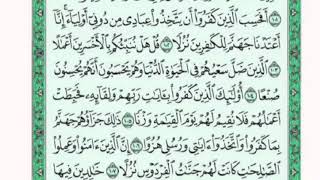 ١٠١ أَفَحَسِبَ ٱلَّذِينَ كَفَرُوٓا۟ أَن يَتَّخِذُوا۟ عِبَادِى مِن دُونِىٓ أَوْلِيَآءَ إِنَّآ
أَعْتَدْنَا جَهَنَّمَ لِلْكَٰفِرِينَ نُزُلًا ١٠٢ قُلْ هَلْ نُنَبِّئُكُم بِٱلْأَخْسَرِينَ أَعْمَٰلًا
١٠٣ ٱلَّذِينَ ضَلَّ سَعْيُهُمْ فِى ٱلْحَيَوٰةِ ٱلدُّنْيَا وَهُمْ يَحْسَبُونَ أَنَّهُمْ يُحْسِنُونَ
صُنْعًا ١٠٤ أُو۟لَٰٓئِكَ ٱلَّذِينَ كَفَرُوا۟ بِـَٔايَٰتِ رَبِّهِمْ وَلِقَآئِهِۦ فَحَبِطَتْ
أَعْمَٰلُهُمْ فَلَا نُقِيمُ لَهُمْ يَوْمَ ٱلْقِيَٰمَةِ وَزْنًا ١٠٥ ذَٰلِكَ جَزَآؤُهُمْ جَهَنَّمُ
بِمَا كَفَرُوا۟ وَٱتَّخَذُوٓا۟ ءَايَٰتِى وَرُسُلِى هُزُوًا ١٠٦ إِنَّ ٱلَّذِينَ ءَامَنُوا۟ وَعَمِلُوا۟
ٱلصَّٰلِحَٰتِ كَانَتْ لَهُمْ جَنَّٰتُ ٱلْفِرْدَوْسِ نُزُلًا ١٠٧ خَٰلِدِينَ فِيهَا